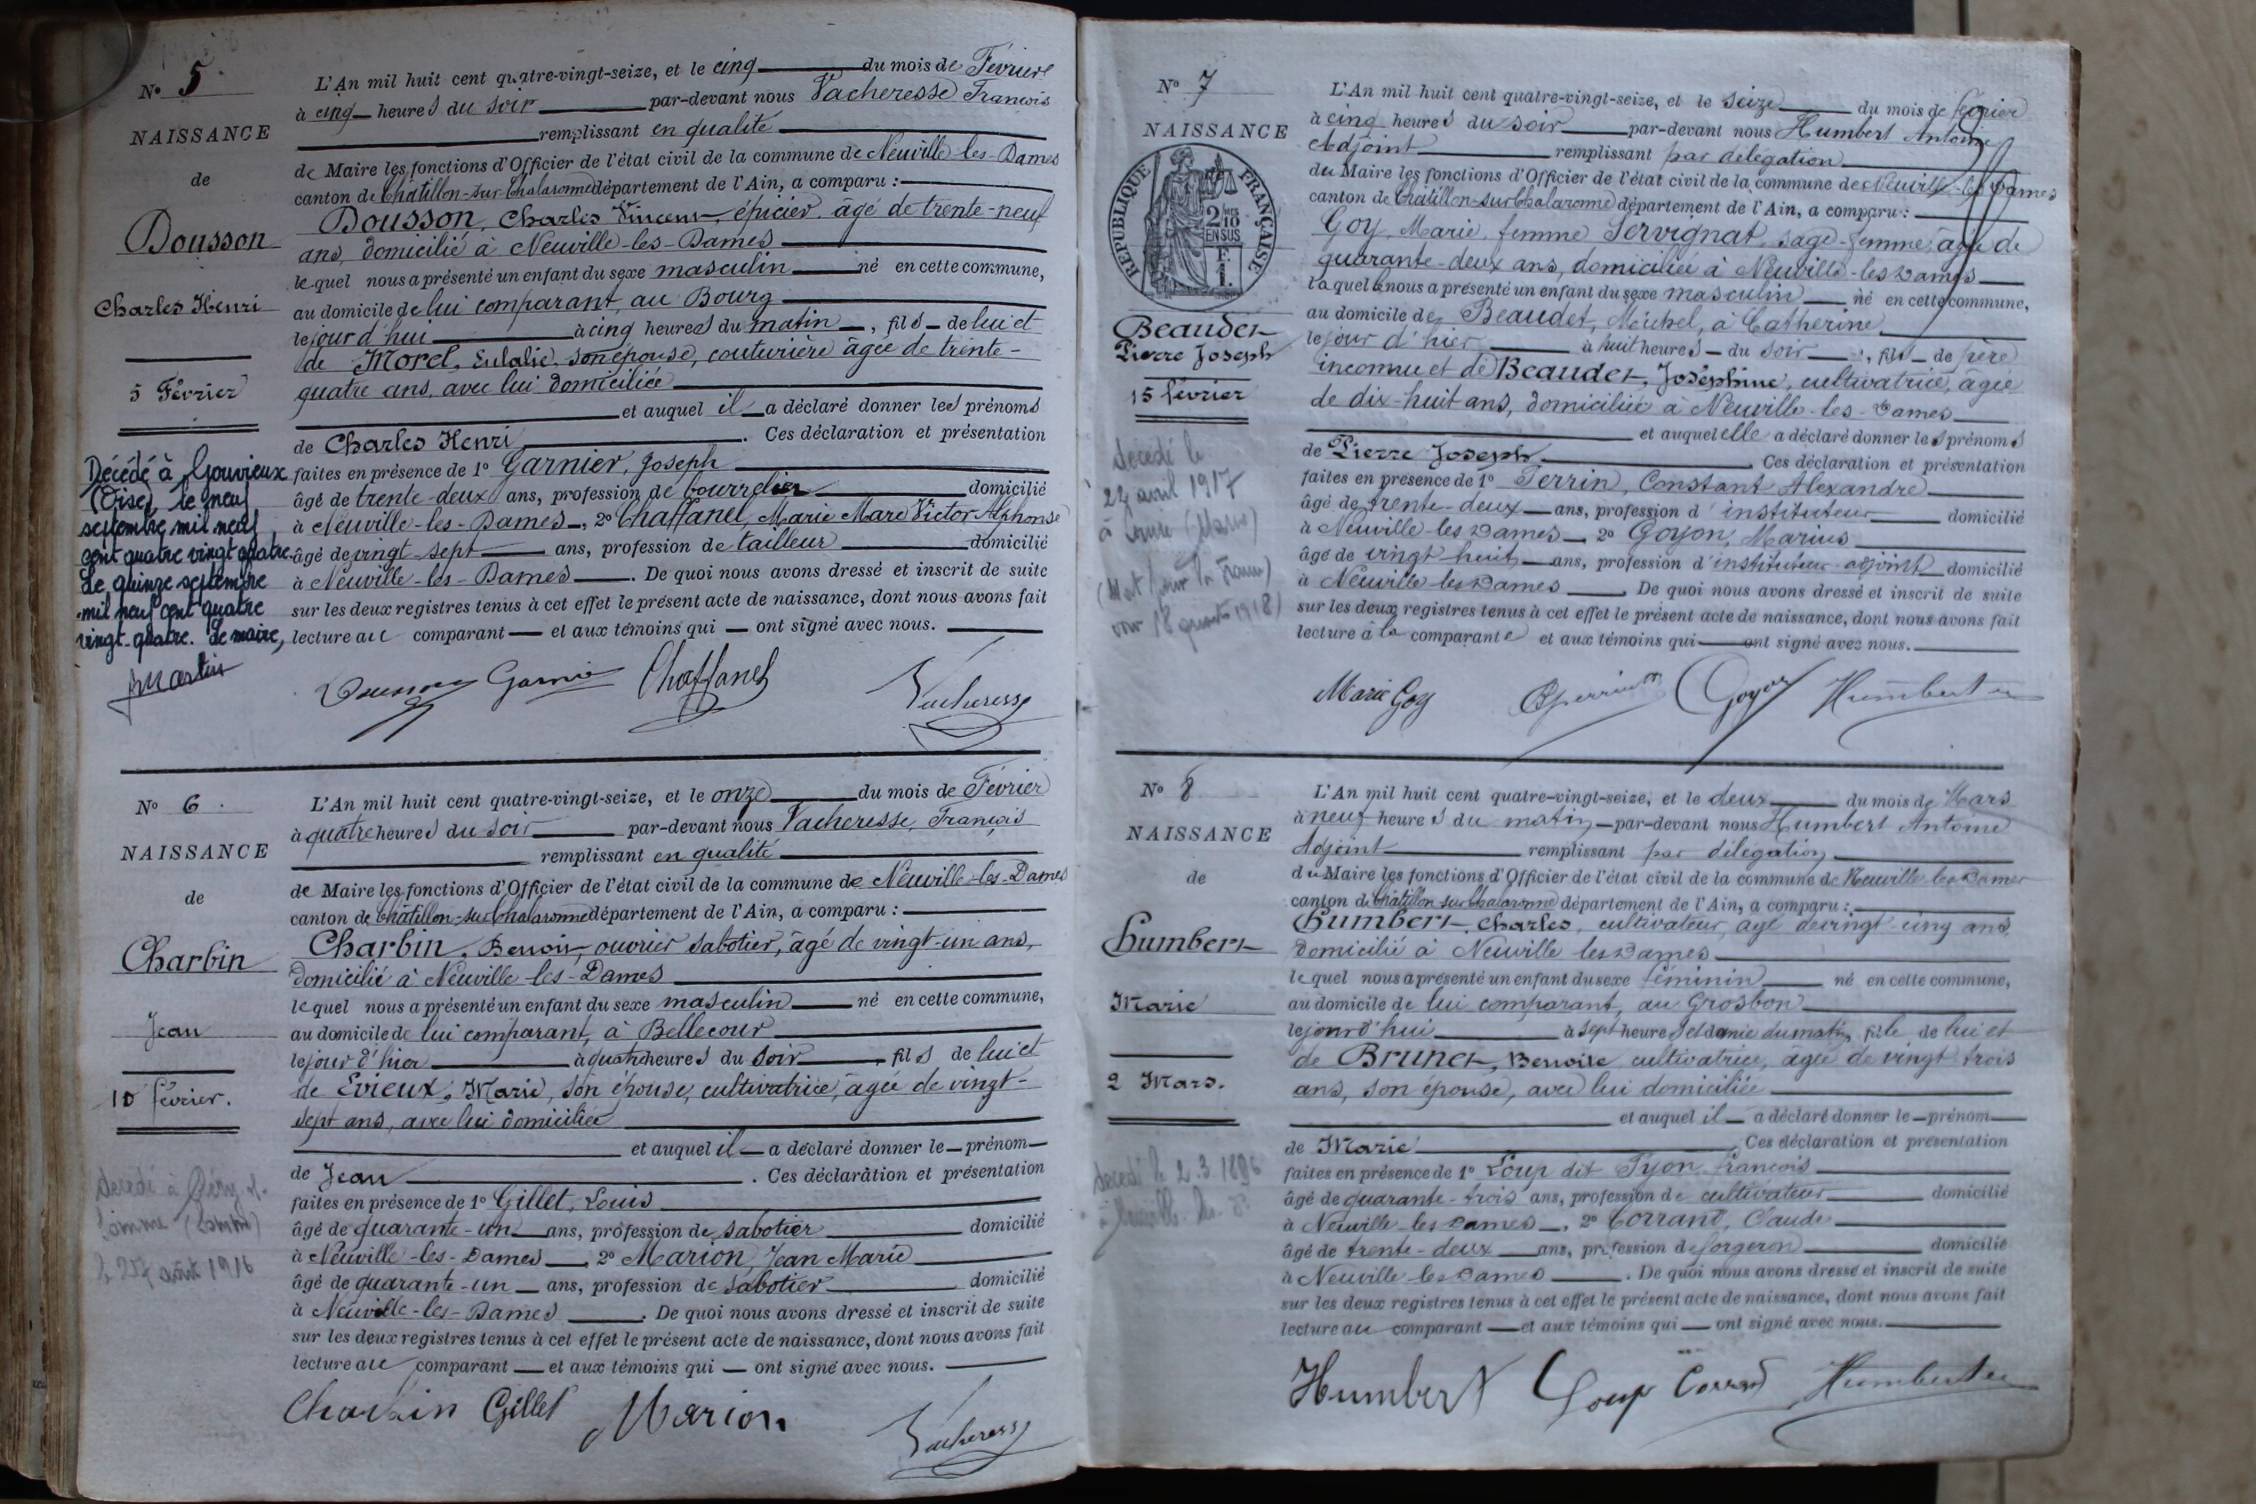 N° 5
NAISSANCE
de
Dousson
Charles Henri
5 Février
Décédé à Gouvieux
(Oise) le neuf
septembre mil neuf
cent quatre vingt quatre
Le quinze septembre
mil neuf cent quatre
vingt-quatre. Le maire,
L'An mil huit cent quatre-vingt-seize, et le cinq du mois de Février
à cinq heures du soir par-devant nous Vacheresse François
remplissant en qualité
de Maire les fonctions d'Officier de l'état civil de la commune de Neuville-les-Dames
canton de Châtillon-sur-Chalaronne département de l'Ain, a comparu :
Dousson, Charles Vincent, épicier, âgé de trente-neuf
ans, domicilié à Neuville-les-Dames
lequel nous a présenté un enfant du sexe masculin né en cette commune,
au domicile de lui comparant, au Bourg
le jour d'hui à cinq heures du matin, fils de lui et
de Morel, Eulalie, son épouse, couturière âgée de trente-
quatre ans, avec lui domiciliée
et auquel il a déclaré donner les prénoms
de Charles Henri. Ces déclaration et présentation
faites en présence de 1° Garnier, Joseph
âgé de trente-deux ans, profession de bourrelier domicilié
à Neuville-les-Dames, 2° Chaffanel, Marie Marc Victor Alphonse
âgé de vingt-sept ans, profession de tailleur domicilié
à Neuville-les-Dames. De quoi nous avons dressé et inscrit de suite
sur les deux registres tenus à cet effet le présent acte de naissance, dont nous avons fait
lecture au comparant et aux témoins qui ont signé avec nous.
Martin
Dousson Garnier Chaffanel Vacheresse
N° 6
NAISSANCE
de
Charbin
Jean
10 février.
L'An mil huit cent quatre-vingt-seize, et le onze du mois de Février
à quatre heures du soir par-devant nous Vacheresse, François
remplissant en qualité
de Maire les fonctions d'Officier de l'état civil de la commune de Neuville-les-Dames
canton de Châtillon-sur-Chalaronne département de l'Ain, a comparu :
Charbin, Benoit, ouvrier sabotier, âgé de vingt-un ans,
domicilié à Neuville-les-Dames
lequel nous a présenté un enfant du sexe masculin né en cette commune,
au domicile de lui comparant, à Bellecour
le jour d'hier à quatre heures du soir, fils de lui et
de Evieux, Marie, son épouse, cultivatrice, âgée de vingt-
sept ans, avec lui domiciliée
et auquel il a déclaré donner le prénom
de Jean. Ces déclaration et présentation
faites en présence de 1° Gillet, Louis
âgé de quarante-un ans, profession de sabotier domicilié
à Neuville-les-Dames, 2° Marion, Jean Marie
âgé de quarante-un ans, profession de sabotier domicilié
à Neuville-les-Dames. De quoi nous avons dressé et inscrit de suite
sur les deux registres tenus à cet effet le présent acte de naissance, dont nous avons fait
lecture au comparant et aux témoins qui ont signé avec nous.
décédé à
Somme (Somme)
août 1916
Charbin Gillet Marion Vacheresse
N° 7
NAISSANCE
RÉPUBLIQUE FRANÇAISE
2/10 EN SUS
Beaudet
Pierre Joseph
15 février
L'An mil huit cent quatre-vingt-seize, et le seize du mois de février
à cinq heures du soir par-devant nous Humbert Antoine
Adjoint remplissant par délégation
du Maire les fonctions d'Officier de l'état civil de la commune de Neuville-les-Dames
canton de Châtillon-sur-Chalaronne département de l'Ain, a comparu :
Goy, Marie, femme Servignat, sage-femme, âgée de
quarante-deux ans, domiciliée à Neuville-les-Dames
laquelle nous a présenté un enfant du sexe masculin né en cette commune,
au domicile de Beaudet, Michel, à Catherine
le jour d'hier à huit heures du soir, fils de père
inconnu et de Beaudet, Joséphine, cultivatrice, âgée
de dix-huit ans, domiciliée à Neuville-les-Dames
et auquel elle a déclaré donner les prénoms
de Pierre Joseph. Ces déclaration et présentation
faites en présence de 1° Perrin, Constant Alexandre
âgé de trente-deux ans, profession d'instituteur domicilié
à Neuville-les-Dames, 2° Goyon, Marius
âgé de vingt-huit ans, profession d'instituteur-adjoint domicilié
à Neuville-les-Dames. De quoi nous avons dressé et inscrit de suite
sur les deux registres tenus à cet effet le présent acte de naissance, dont nous avons fait
lecture à la comparante et aux témoins qui ont signé avec nous.
décédé le
avril 1917
(Marne)
(Mort pour la France)
1918)
Marie Goy Perrin Goyon Humbert
N° 8
NAISSANCE
de
Humbert
Marie
2 Mars.
L'An mil huit cent quatre-vingt-seize, et le deux du mois de Mars
à neuf heures du matin par-devant nous Humbert Antoine
Adjoint remplissant par délégation
du Maire les fonctions d'Officier de l'état civil de la commune de Neuville-les-Dames
canton de Châtillon-sur-Chalaronne département de l'Ain, a comparu :
Humbert, Charles, cultivateur, âgé de vingt-cinq ans,
domicilié à Neuville les Dames
lequel nous a présenté un enfant du sexe féminin né en cette commune,
au domicile de lui comparant, au Grosbon
le jourd'hui à sept heures et demie du matin, fille de lui et
de Brunet, Benoite cultivatrice, âgée de vingt-trois
ans, son épouse, avec lui domiciliée
et auquel il a déclaré donner le prénom
de Marie. Ces déclaration et présentation
faites en présence de 1° Loup dit Tyon, François
âgé de quarante-trois ans, profession de cultivateur domicilié
à Neuville-les-Dames, 2° Corrand, Claude
âgé de trente-deux ans, profession de forgeron domicilié
à Neuville-les-Dames. De quoi nous avons dressé et inscrit de suite
sur les deux registres tenus à cet effet le présent acte de naissance, dont nous avons fait
lecture au comparant et aux témoins qui ont signé avec nous.
décédé le 2.3.1896
Humbert Loup Corrand Humbert